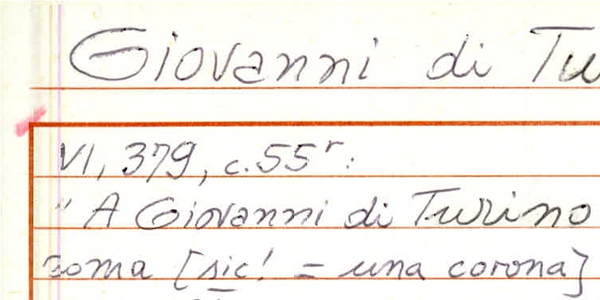 Giovanni di Tu
VI, 379, c. 55r:
" A Giovanni di Turino
roma [sic! = una corona]